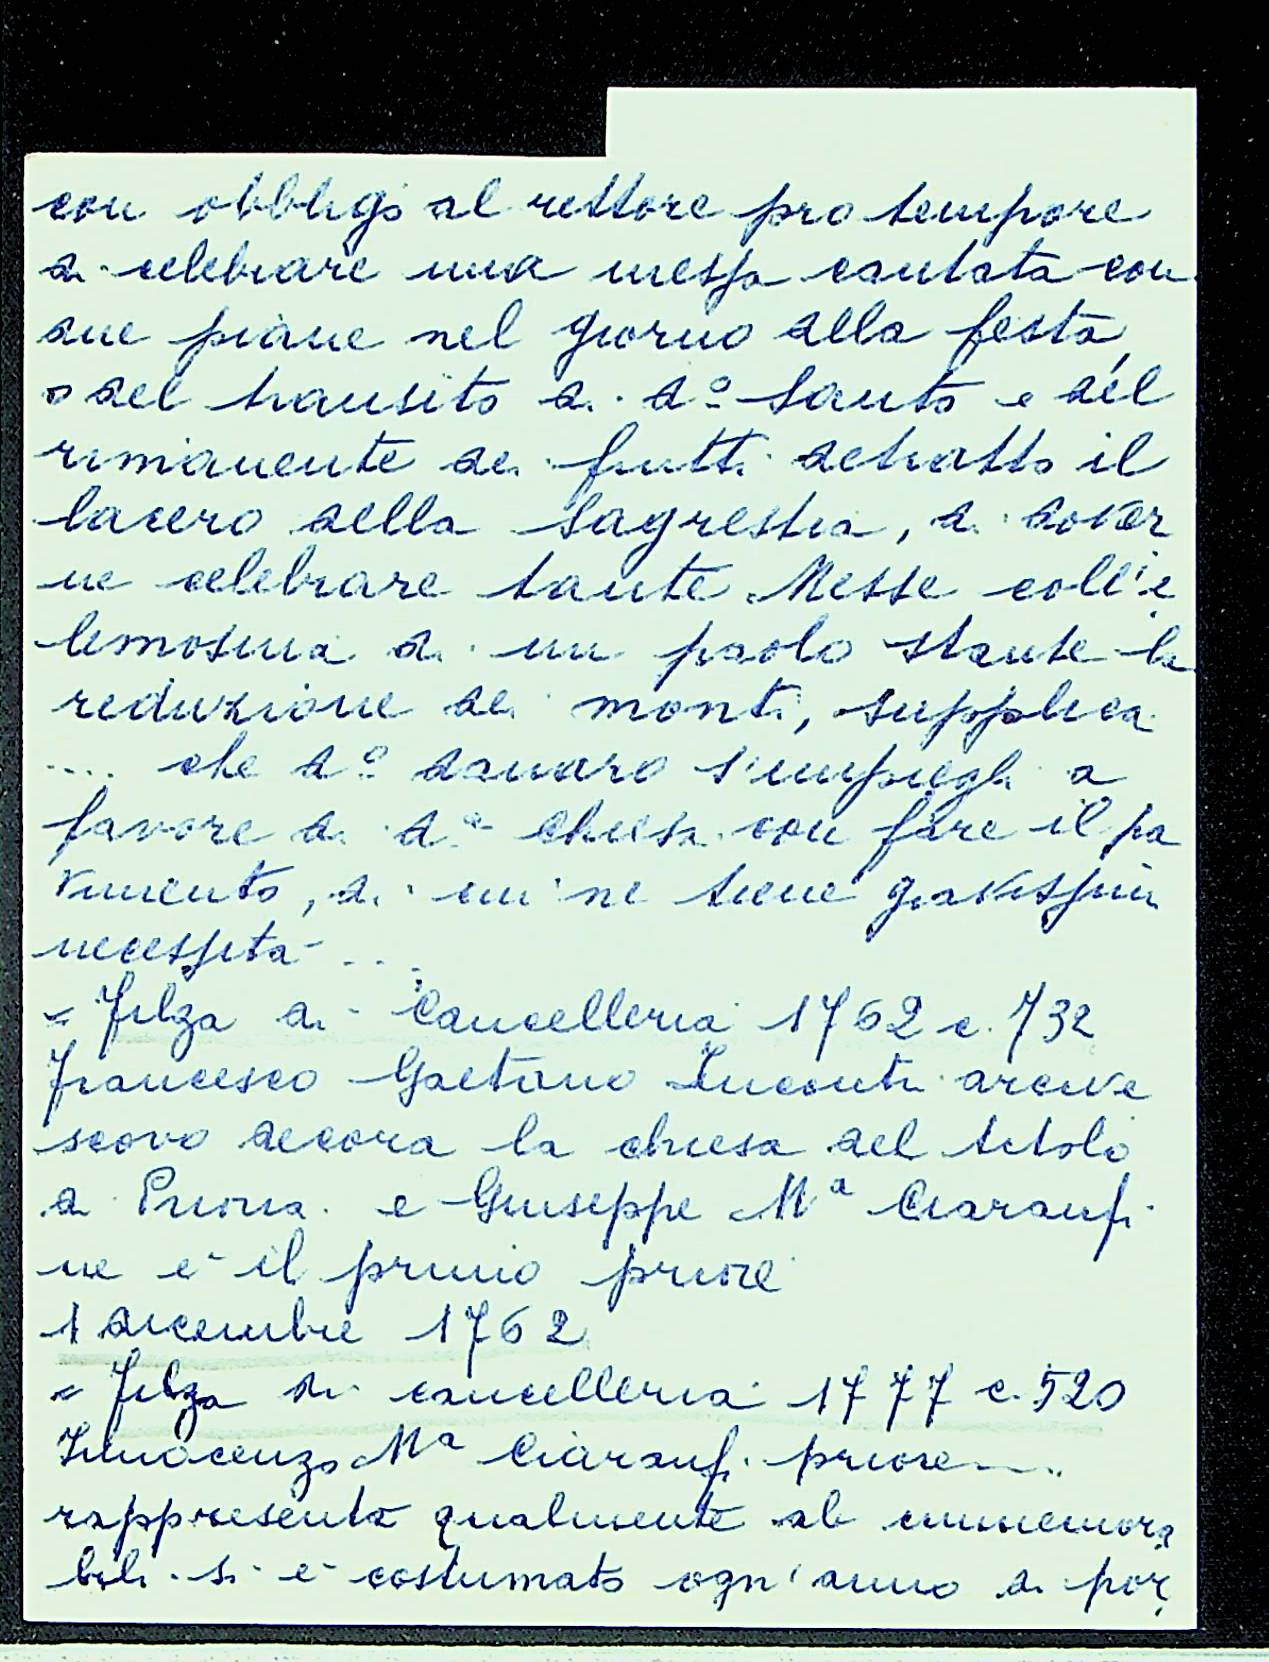 con obbligo al rettore pro tempore
di celebrare una messa cantata con
due piane nel giorno della festa,
o del transito di d.º Santo e del
rimanente dei frutti detratto il
lacero della Sagrestia, di dover
ne celebrare tante Messe coll'e
lemosina di un paolo stante la
reduzione dei monti, supplica
.... che d.º danaro s'impieghi a
favore di d.ª chiesa con fare il pa
vimento, di cui ne tiene gravissima
necessità ....
= Filza di Cancelleria 1762 c. 732
Francesco Gaetano Incontri arcive
scovo decora la chiesa del titolo
di Prioria e Giuseppe Mª Ciaranfi
ne è il primo priore
1 dicembre 1762
= Filza di cancelleria 1777 c. 520
Innocenzo Mª Ciaranfi priore ....
rappresenta qualmente ab immemora
bili si è costumato ogn'anno di por